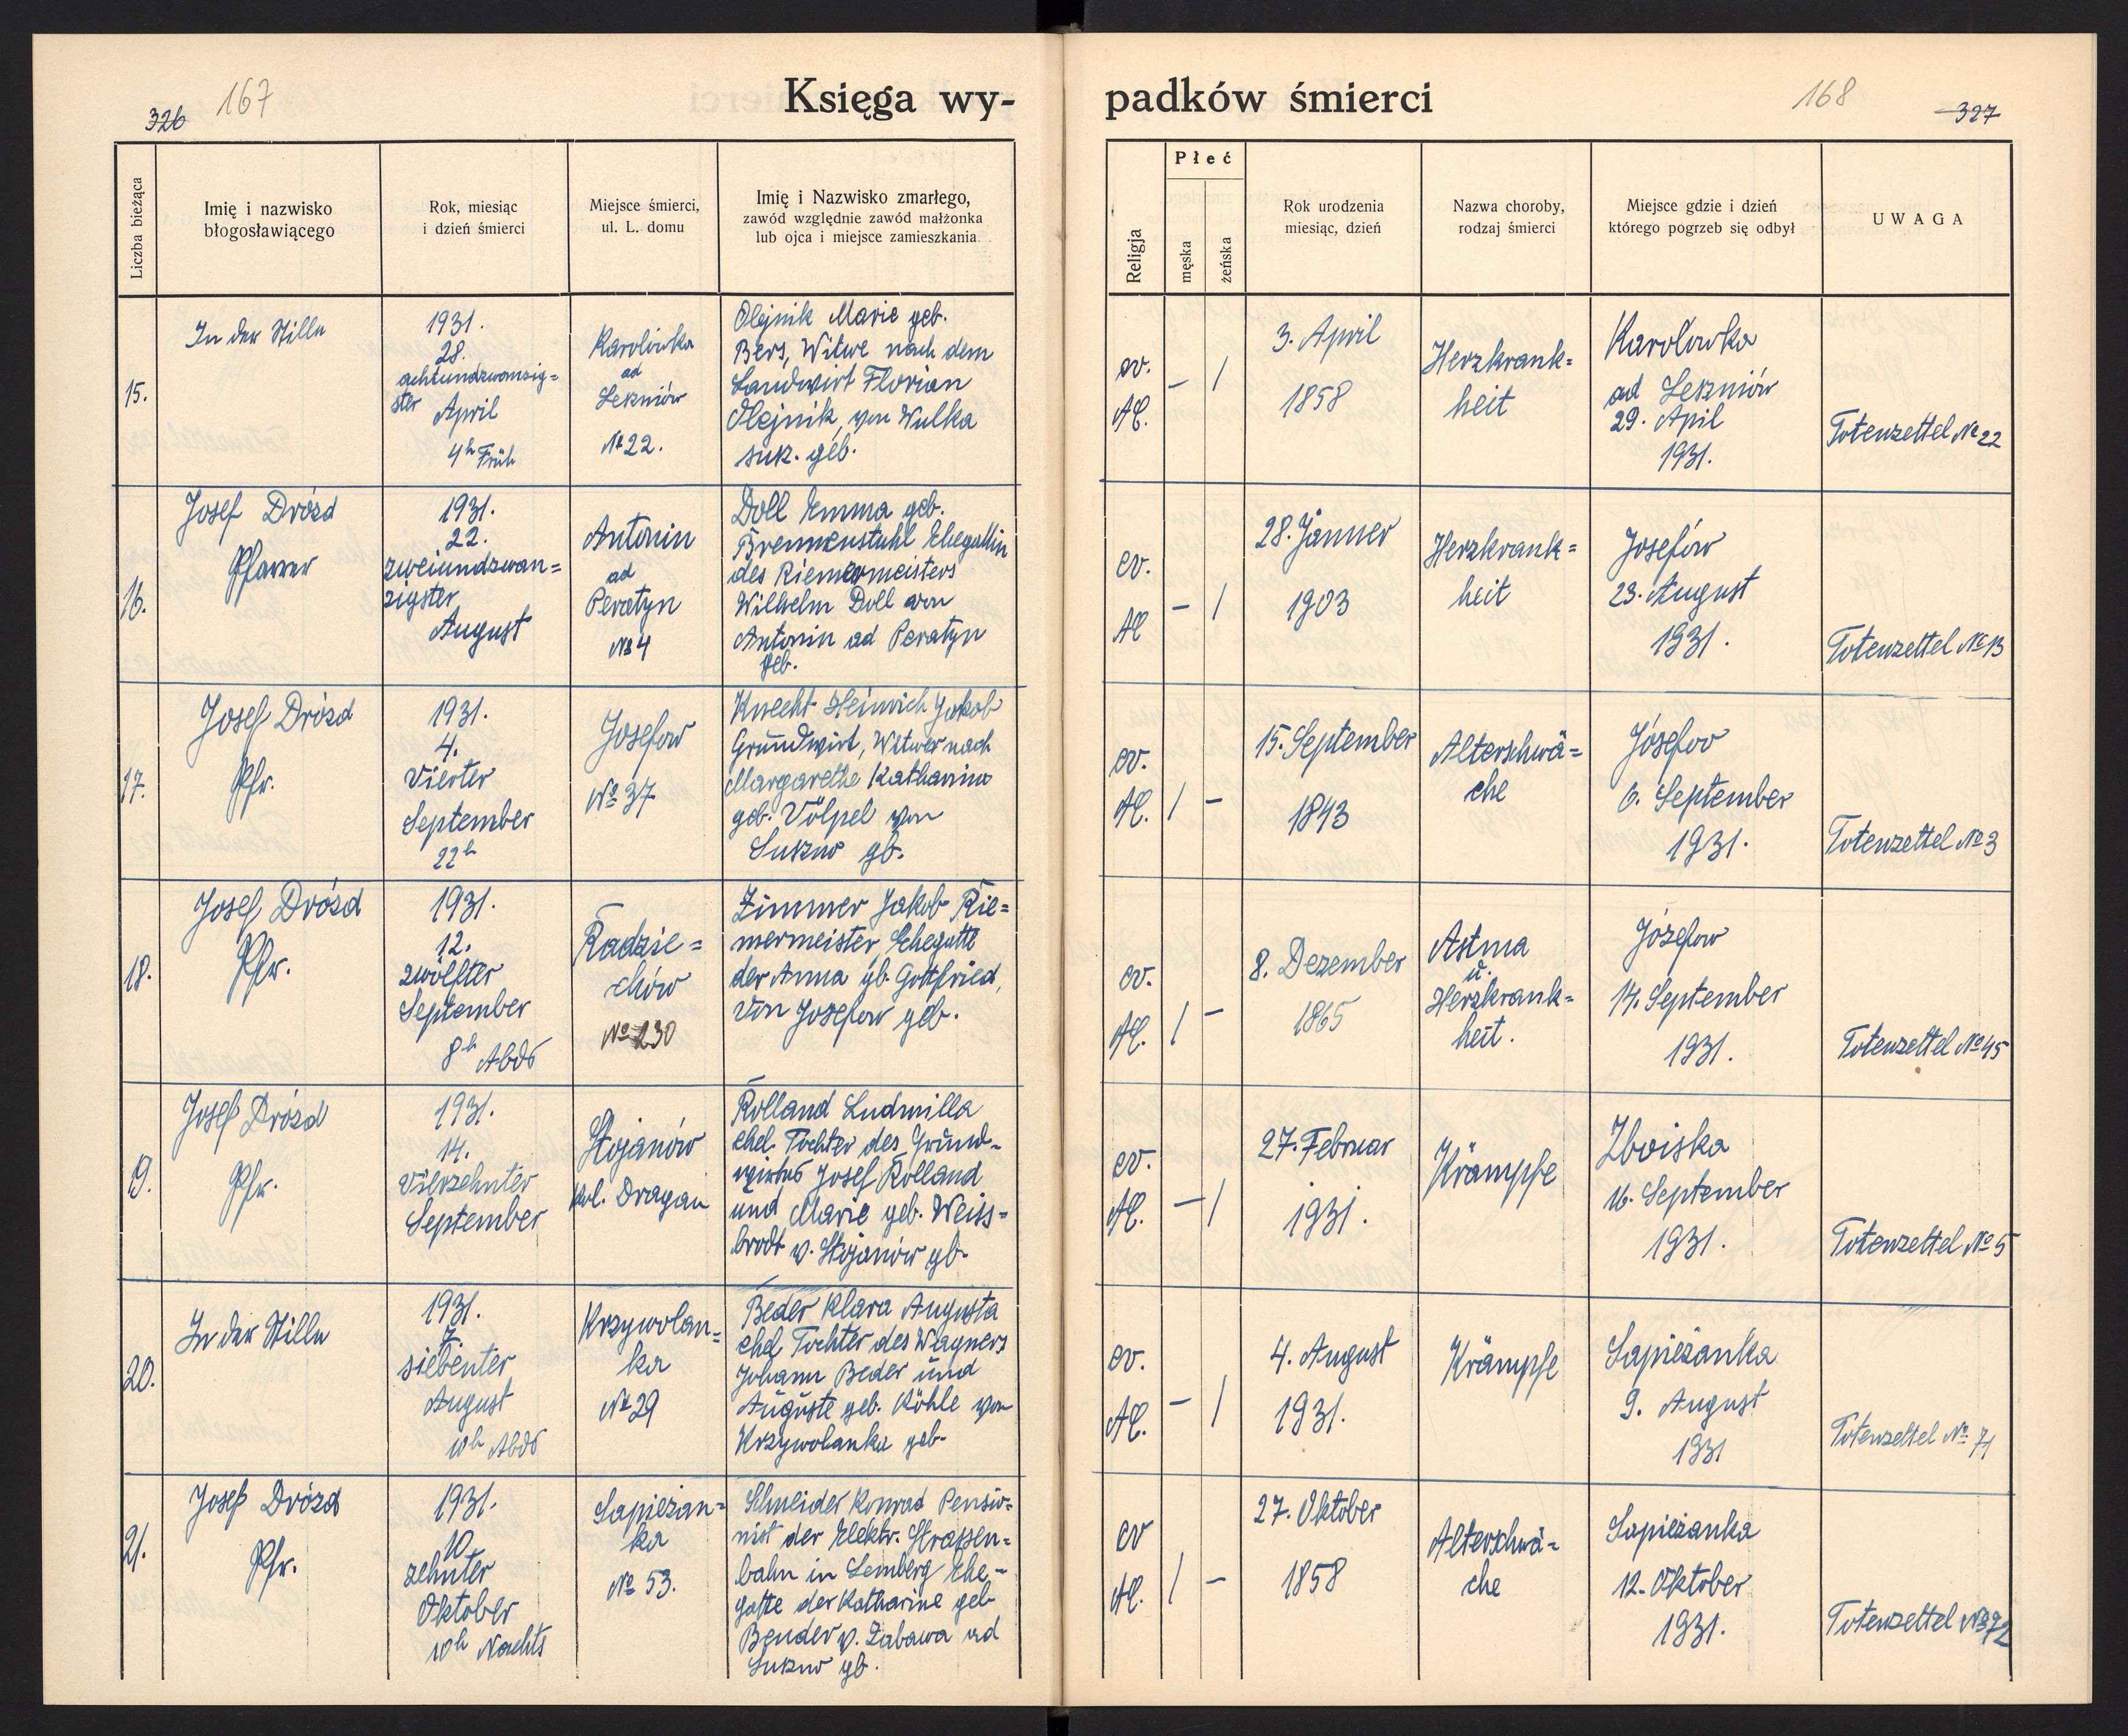 167
326
Księga wy-
Liczba bieżąca
Imię i nazwisko
błogosławiącego
Rok, miesiąc
i dzień śmierci
Miejsce śmierci,
ul. L. domu
Imię i Nazwisko zmarłego,
zawód względnie zawód małżonka
lub ojca i miejsce zamieszkania
15.
In der Stille
1931.
28.
achtundzwanzig=
ster April
4h Früh
Karolówka
ad
№ 22.
Olejnik Marie geb.
Witwe nach dem
Landwirt Florian
Olejnik, von Wulka
geb.
16.
Josef Drozd
Pfarrer
1931.
22.
zweiundzwan=
zigster
August
Antonin
ad
Peratyn
№ 4
Doll Emma geb.
Brennenstuhl Ehegattin
des Riemermeisters
Wilhelm Doll von
Antonin ad Peratyn
geb.
17.
Josef Drozd
Pfr.
1931.
4.
Vierter
September
22h
Josefow
№ 37
Knecht Heinrich Jakob
Grundwirt, Witwer nach
Margarethe Katharina
geb. Völpel von
gb.
18.
Josef Drozd
Pfr.
1931.
12.
zwölfter
September
8h Abds
Radzie=
chów
№ 230
Zimmer Jakob Rie=
mermeister, Ehegatte
der Anna gb. Gottfried,
von Josefow geb.
19.
Josef Drozd
Pfr.
1931.
14.
Vierzehnter
September
Stojanów
kol. Dragan
Rolland Ludmilla
ehel. Tochter des Grund-
wirtes Josef Rolland
und Marie geb. Weiss=
brodt v. Stojanów gb.
20.
In der Stille
1931.
7.
siebenter
August
10h Abds
Krzywolan=
ka
№ 29
Beder Klara Augusta
ehel Tochter des Wagners
Johann Beder und
Auguste geb. Köhle von
Krzywolanka geb.
21.
Josef Drozd
Pfr.
1931.
10.
zehnter
Oktober
10h Nachts
Sapiezan=
ka
№ 53.
Schneider Konrad Pensio=
nist der Elektr. Strassen=
bahn in Lemberg Ehe-
gatte der Katharine geb
Bender v. Zabawa ad
gb.
padków śmierci
168
327
Religja
Płeć
męska
żeńska
Rok urodzenia
miesiąc, dzień
Nazwa choroby,
rodzaj śmierci
Miejsce gdzie i dzień
którego pogrzeb się odbył
UWAGA
ev.
AC.
– /
3. April
1858
Herzkrank=
heit
Karolowka
ad
29. April
1931.
Totenzettel № 22
ev.
AC
– /
28. Jänner
1903
Herzkrank=
heit
Josefów
23. August
1931.
Totenzettel № 13
ev.
AC.
/ –
15. September
1843
Alterschwä=
che
Józefow
6. September
1931.
Totenzettel № 3
ev.
AC.
/ –
8. Dezember
1865
Astma
u.
Herzkrank=
heit.
Józefow
14. September
1931.
Totenzettel № 45
ev.
AC.
– /
27. Februar
1931.
Krämpfe
Zboiska
16. September
1931.
Totenzettel № 5
ev.
AC.
– /
4. August
1931.
Krämpfe
Sapieżanka
9. August
1931
Totenzettel № 71
ev
AC.
/ –
27. Oktober
1858
Alterschwä=
che
Sapieżanka
12. Oktober
1931.
Totenzettel